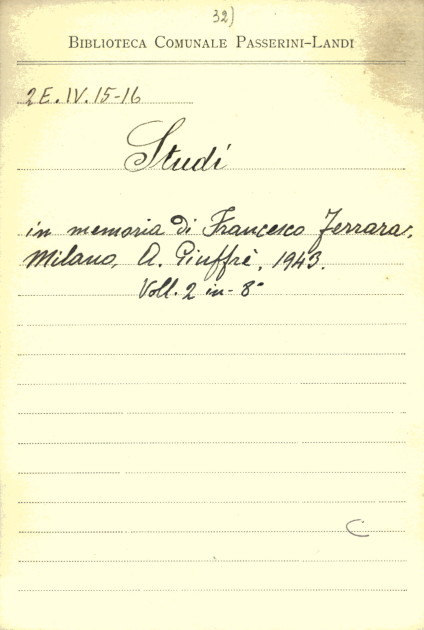 32)
BIBLIOTECA COMUNALE PASSERINI-LANDI
2E.IV.15-16
Studi
in memoria di Francesco Ferrara,
Milano, A. Giuffrè, 1943.
Voll. 2 in-8°
C